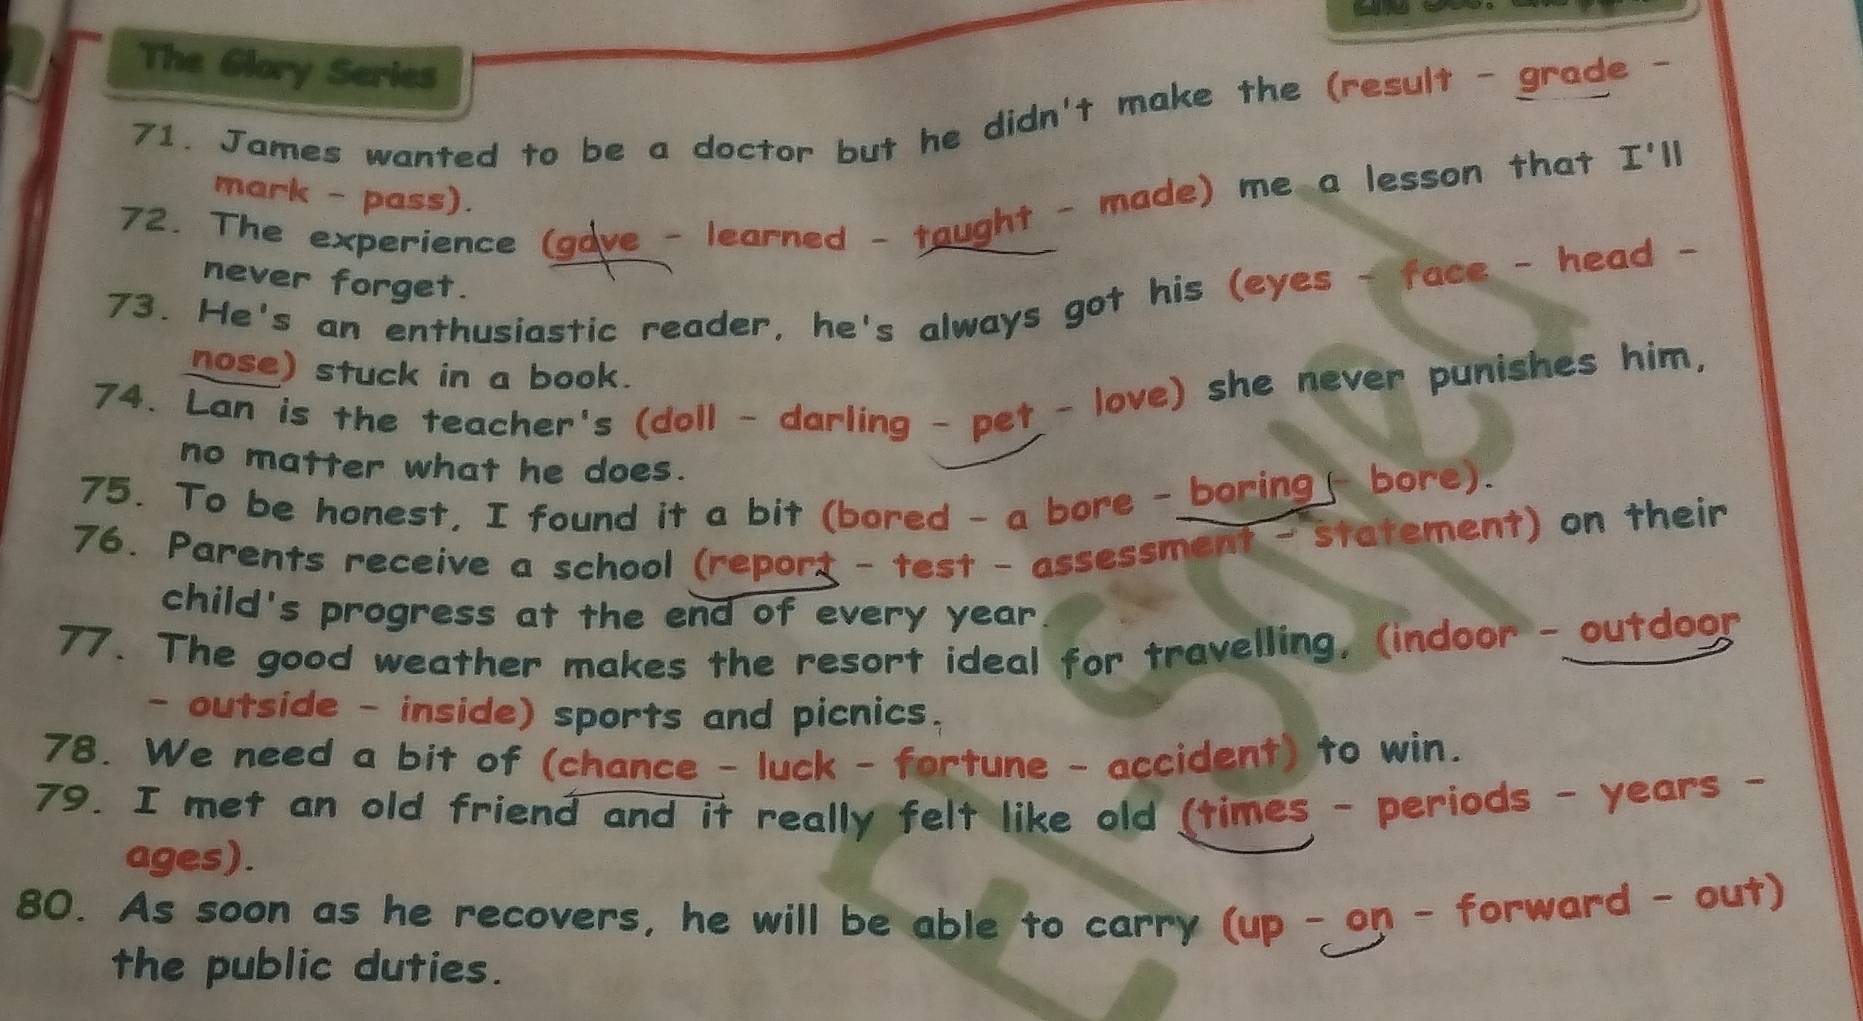 The Glory Series
71. James wanted to be a doctor but he didn't make the (result - grade -
mark - pass).
72. The experience (gave - learned - taught - made) me a lesson that I'll
never forget.
73. He's an enthusiastic reader, he's always got his (eyes - face - head -
nose) stuck in a book.
74. Lan is the teacher's (doll - darling - pet - love) she never punishes him,
no matter what he does.
75. To be honest, I found it a bit (bored - a bore - boring - bore).
76. Parents receive a school (report - test - assessment - statement) on their
child's progress at the end of every year.
77. The good weather makes the resort ideal for travelling, (indoor - outdoor
- outside - inside) sports and picnics.
78. We need a bit of (chance - luck - fortune - accident) to win.
79. I met an old friend and it really felt like old (times - periods - years -
ages).
80. As soon as he recovers, he will be able to carry (up - on - forward - out)
the public duties.
El-Sayed